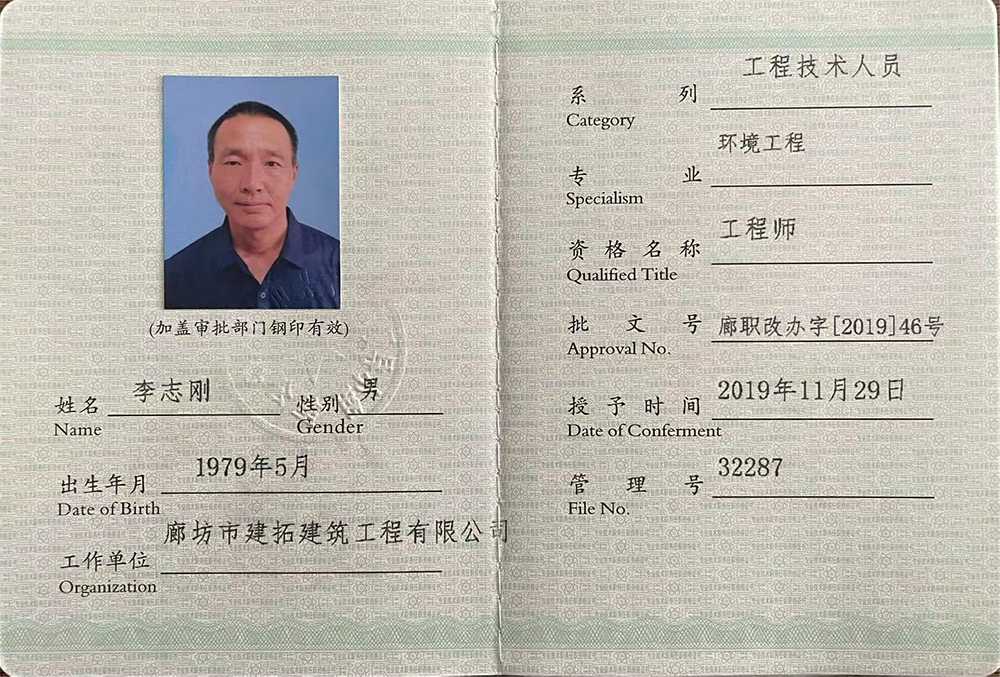 (加盖审批部门钢印有效)
姓名 李志刚 性别 男
Name Gender
出生年月 1979年5月
Date of Birth
工作单位 廊坊市建拓建筑工程有限公司
Organization
系列 工程技术人员
Category
专业 环境工程
Specialism
资格名称 工程师
Qualified Title
批文号 廊职改办字[2019]46号
Approval No.
授予时间 2019年11月29日
Date of Conferment
管理号 32287
File No.